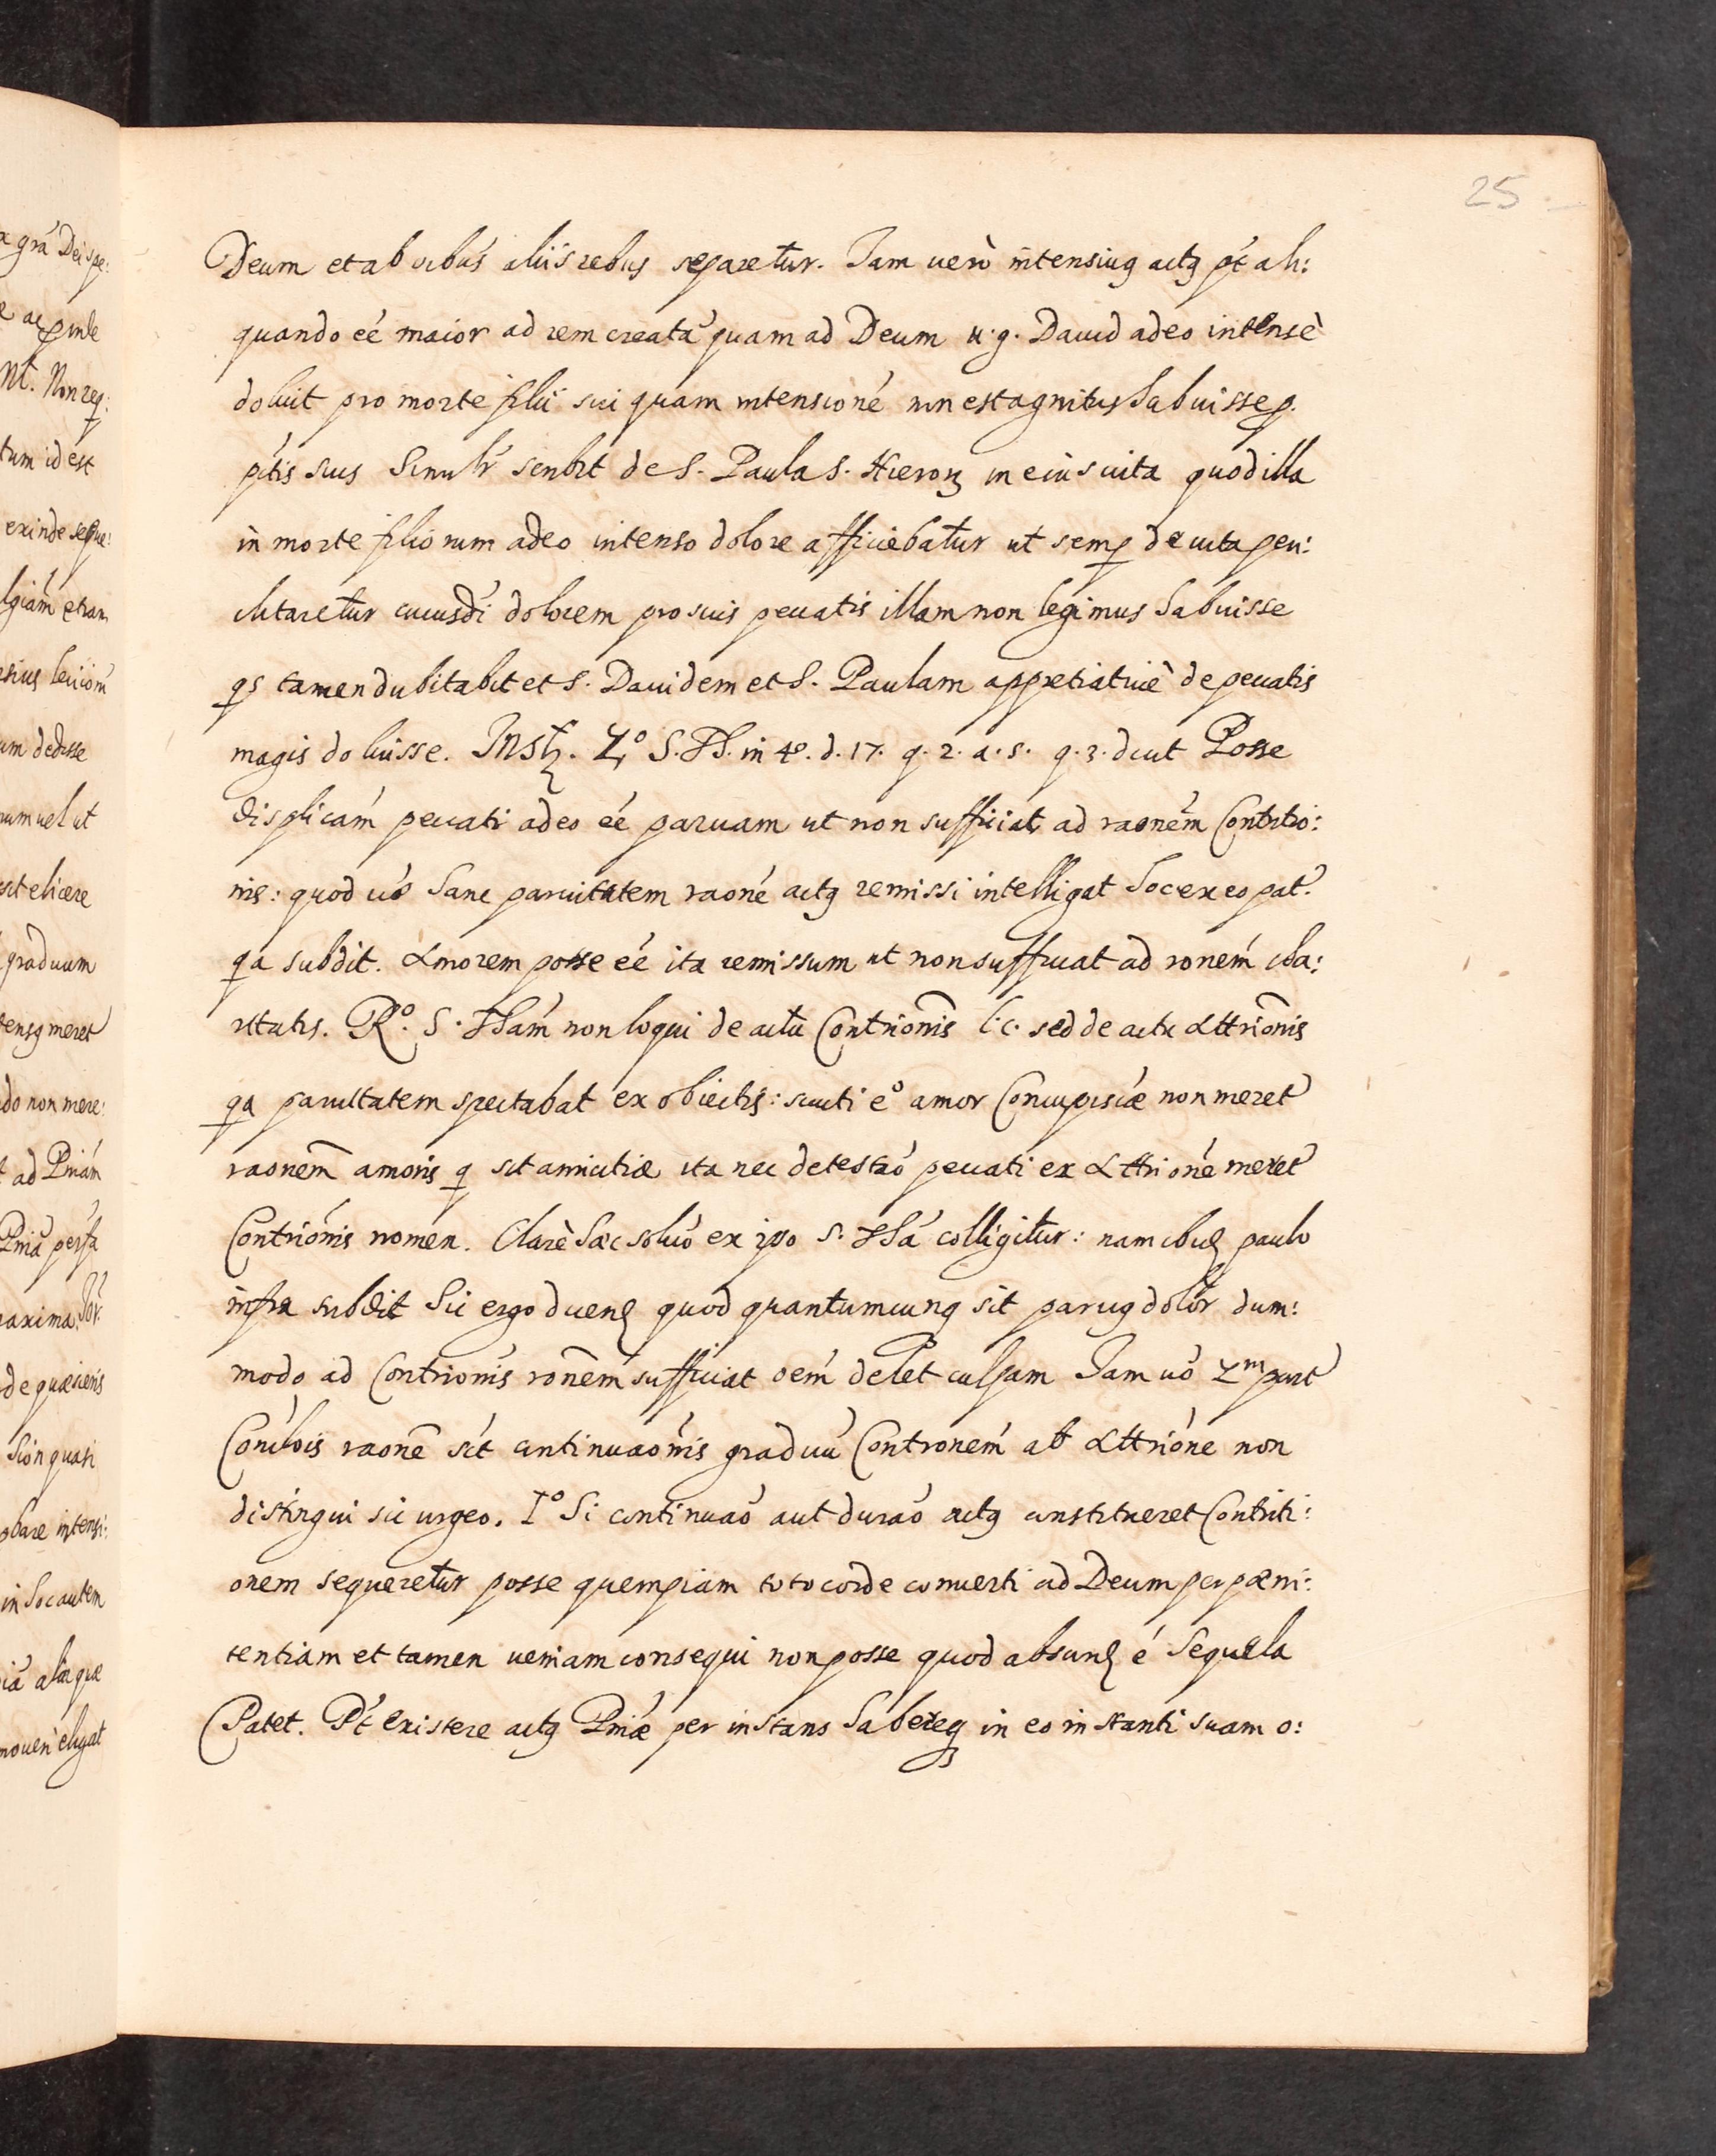 25
Deum et ab oibús aliis rebus separetur. Iam uerò intensiuq actq pt́ ali:
quando eé maior ad rem creatá quam ad Deum u.g. Dauid adeo intensè
doluit pro morte filii sui quam intensioné non est agnitus habuisse p.
ptis suis Similr scribit de S. Paula S. Hieron in eius uita quod illa
in morte filiorum adeo intenso dolore afficiebatur ut semp de uita peri:
clitaretur cuiusdi dolorem pro suis peccatis illam non legimus habuisse
qs tamen dubitabit et S. Dauidem et S. Paulam appretiatiuè de peccatis
magis doluisse. Inst. 2o S. Th. in 4o. d. 17. q. 2. a. s. q. 3. dicit Posse
displicám peccati adeo eé paruam ut non sufficiat ad raonem Contritio:
nis: quod uó hanc paruitatem raoné actq remissi intelligat hoc ex eo pat.
qa subdit. Amorem posse eé ita remissum ut non sufficiat ad ronem cha:
ritatis. Ro. S. Thám non loqui de actu Contrionis l.c. sed de actu Attrionis
qa paruitatem spectabat ex obiectis: sicuti eo amor Concupisciae non meret
raonem amoris q sit amicitiae ita nec detestaó peccati ex Attrioné meret
Contriónis nomen. Clarè haec soluó ex ipo S. Thá colligitur: nam ibid paulo
infra subdit Sic ergo dicend quod quantumcunq sit paruq dolor dum:
modo ad Contrionis ronem sufficiat oem delet culpam Iam uó 2m part
Conclois raone sct continuaonis graduú Contronem ab Attrione non
distingui sic urgeo. 1o Si continuaó aut duraó actq constitueret Contriti:
onem sequeretur posse quempiam toto corde conuerti ad Deum per paeni:
tentiam et tamen ueniam consequi non posse quod absurd é Sequela
Patet. Pt existere actq Pniae per instans habereq in eo instanti suam o: